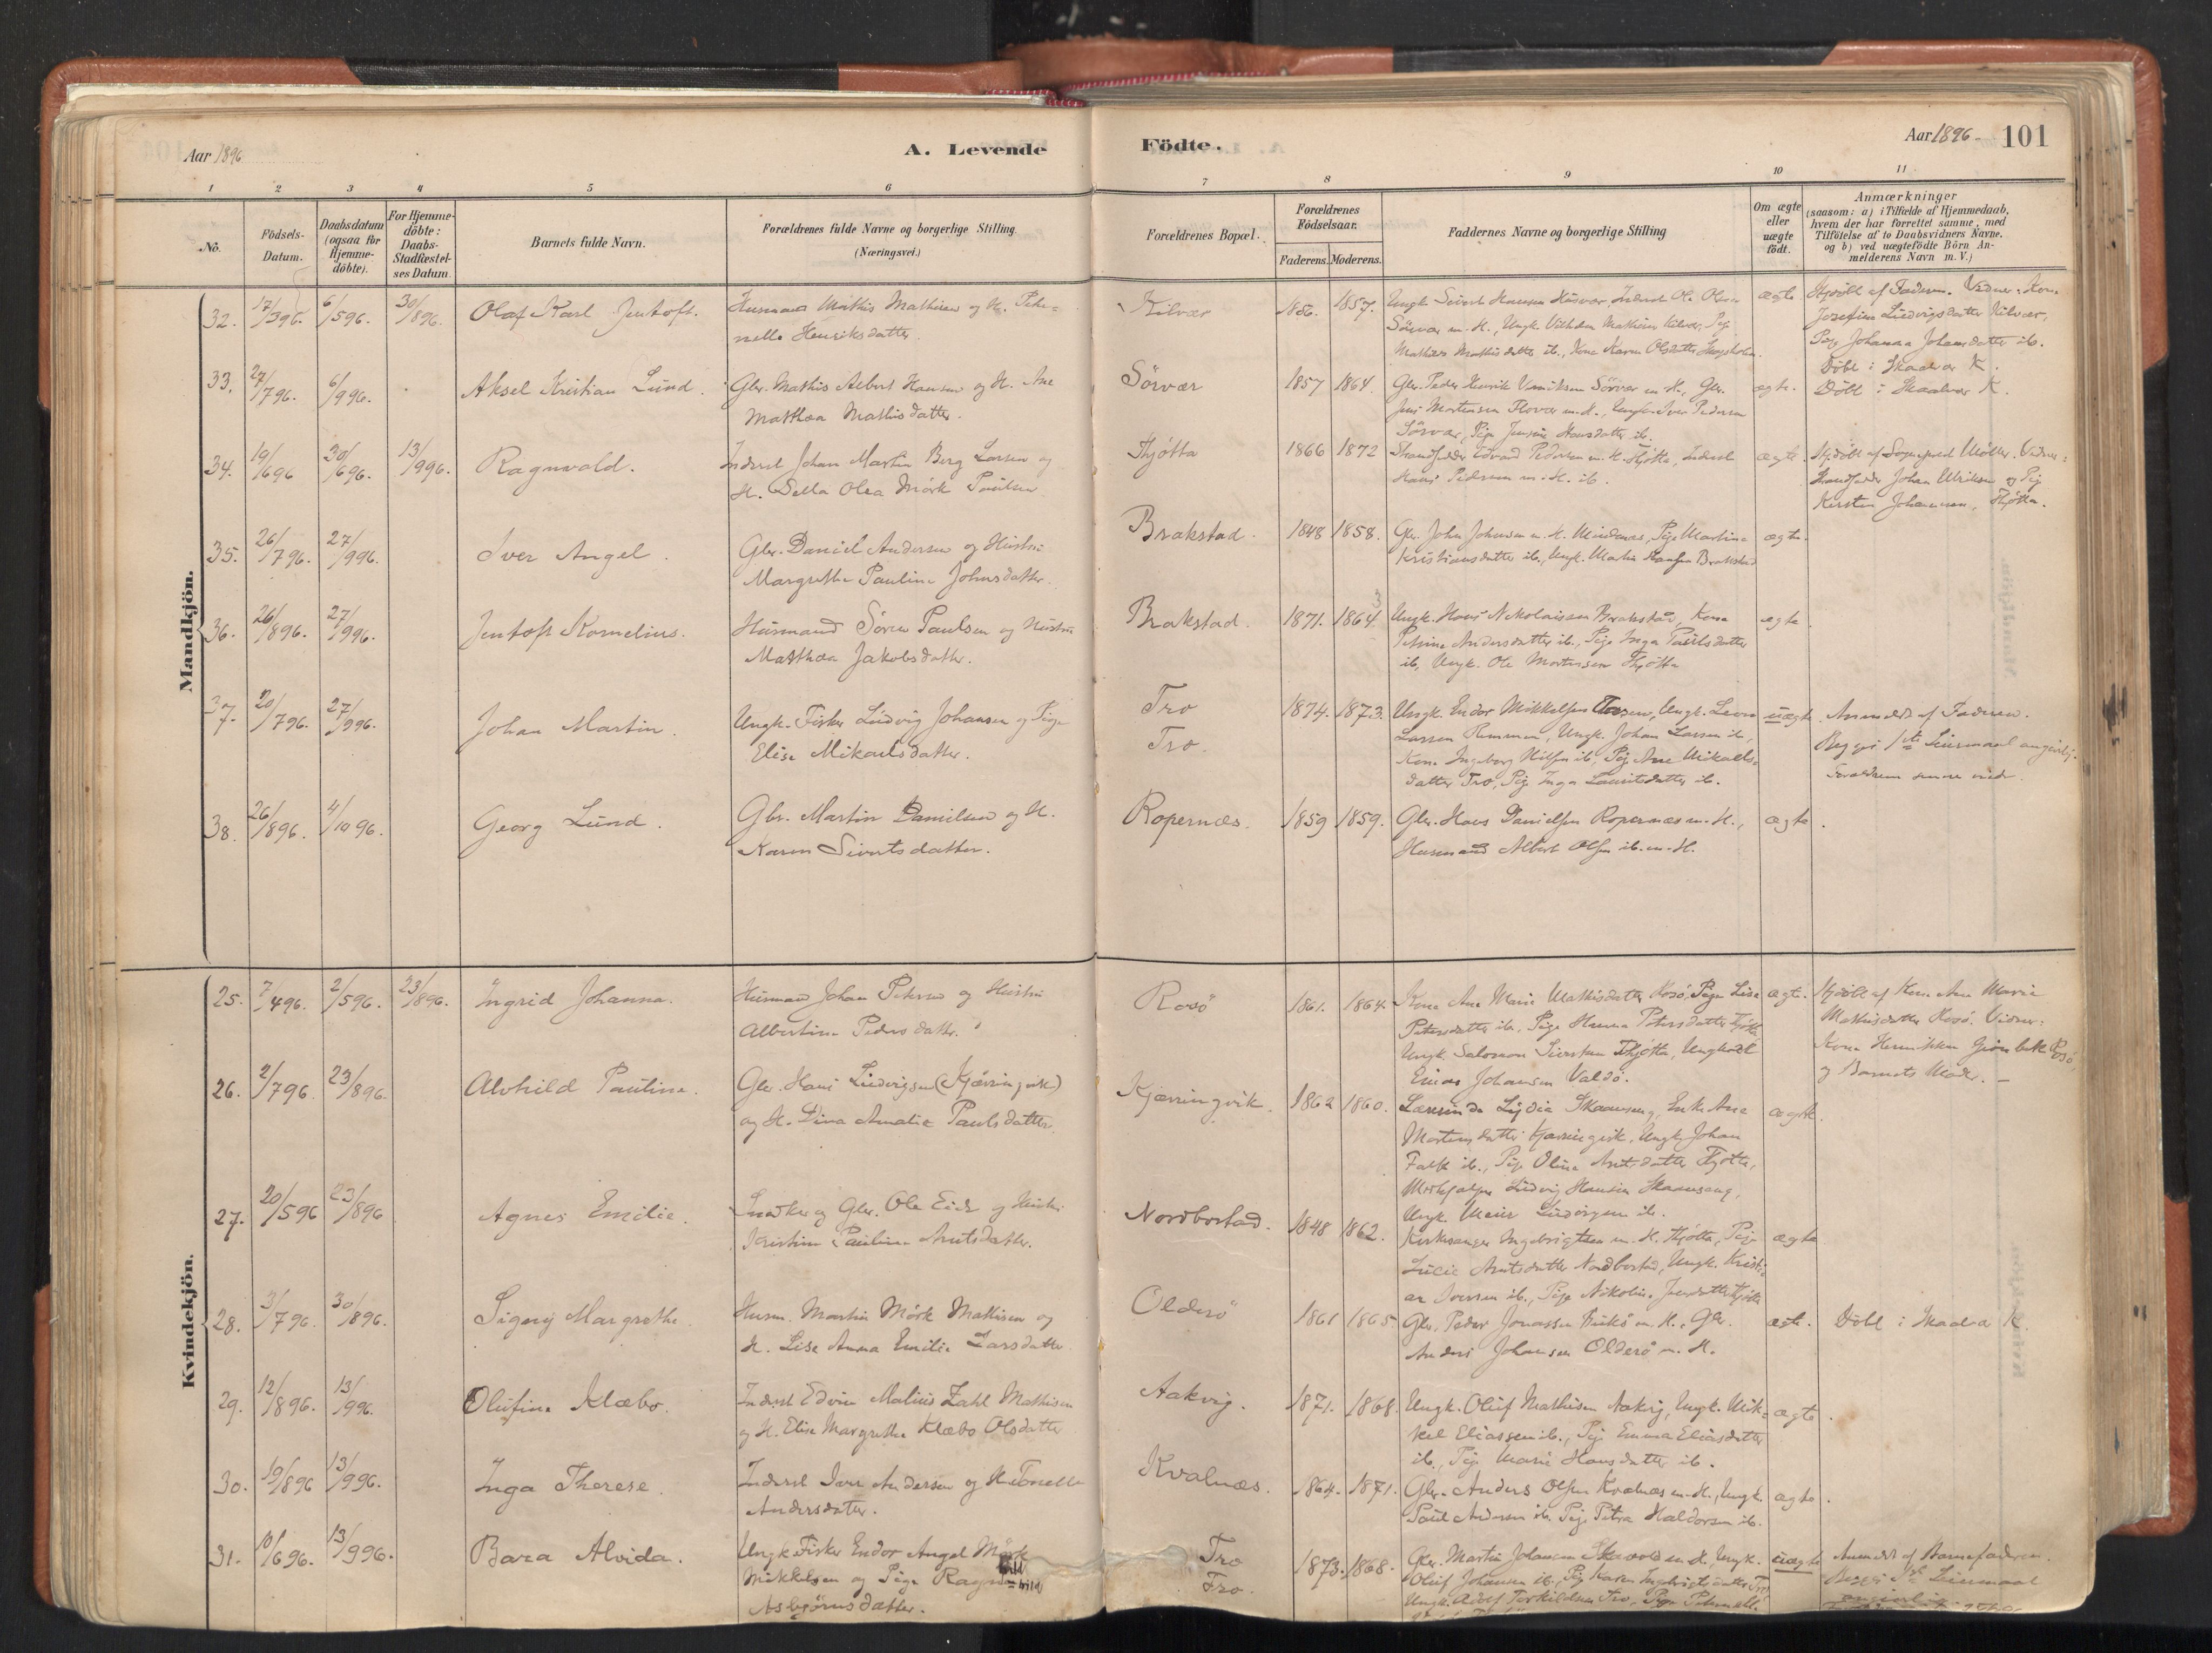 Aar 1896
A. Levende
Födte.
Aar 1896 - 101
1 2 3 4 5 6 7 8 9 10 11
No.
Födsels-
Datum.
Daabsdatum
(ogsaa for
Hjemme-
döbte).
For Hjemme-
döbte:
Daabs-
Stadfæstel-
ses Datum.
Barnets fulde Navn.
Forældrenes fulde Navne og borgerlige Stilling.
(Næringsvei.)
Forældrenes Bopæl.
Forældrenes
Födselsaar.
Faderens. Moderens.
Faddernes Navne og borgerlige Stilling
Om ægte
eller
uægte
födt.
Anmærkninger
(saasom: a) i Tilfælde af Hjemmedaab,
hvem der har forrettet samme, med
Tilföielse af to Daabsvidners Navne.
og b) ved uægtefödte Börn An-
melderens Navn m. V.)
Mandkjön.
32. 17/396. 6/596. 30/896. Olaf Karl Jentoft.
Husmand Mathis Mathisen og H. Peter-
nelle Henriksdatter.
Kilvær 1856. 1857.
Ungk. Sivert Hansen Husvær, Inderst Ole Olsen
Sörvær m. H., Ungk. Vilhelm Mathisen Kilvær, Pige
Mathisdatter ib., Kone Karen Olsdatter
ægte
Hjdöbt af Faderen. Vidner: Kone
Josefine Ludvigsdatter Kilvær,
Pige Johanna Johansdatter ib.
Döbt i Skaalvær K.
33. 27/796. 6/996. Aksel Kristian Lund.
Gbr. Mathis Albert Hansen og H. Ane
Matthea Mathisdatter.
Sörvær 1857 1864.
Gbr. Peder Henrik Sörvær m. H., Gbr.
Jens Mortensen Flovær m. H., Iver Pedersen
Sörvær, Pige Hansdatter ib.
ægte.
Döbt i Skaalvær K.
34. 19/696 30/696. 13/996. Ragnvald.
Inderst Johan Martin Berg Larsen og
H. Sella Olea Mörk Paulsen
Thjötta 1866 1872
Edvard Pedersen m. H. Thjötta, Inderst
Hans Pedersen m. H. ib.
ægte.
Hjdöbt af Sogneprest Möller. Vidner:
Johan Ulriksen og Pige
Kirsten Johannesen, Thjötta.
35. 26/796. 27/996. Iver Angel.
Gbr. Daniel Andersen og Hustru
Margrethe Pauline Johnsdatter.
Brakstad. 1848 1858.
Gbr. John Johnsen m. H. Mindnæs, Pige Martine
Kristiansdatter ib., Ungk. Martin Brakstad
ægte.
36. 26/896. 27/996. Jentoft Kornelius.
Husmand Sören Paulsen og Hustru
Matthea Jakobsdatter.
Brakstad. 1871. 1864. 3
Ungk. Hans Nikolaisen Brakstad, Kone
Petrine Andersdatter ib., Pige Inga Paulsdatter
ib., Ungk. Ole Mortensen Thjötta
ægte.
37. 20/796. 27/996. Johan Martin.
Ungk. Fisker Ludvig Johansen og Pige
Elise Mikaelsdatter.
Tro
Tro
1874. 1873.
Ungk. Endor Mikkelsen Ungk. Leon
Larsen Ungk. Johan Larsen ib.,
Kone Ingeborg ib., Pige Ane Mikaels-
datter Tro, Pige Inga Lauritsdatter ib.
uægte.
Anmeldt af Faderen.
Begges 1ste Leiermaal angivelig.
38. 26/896. 4/1096. Georg Lund.
Gbr. Martin Danielsen og H.
Karen Sivertsdatter.
Ropernæs. 1859 1859.
Gbr. Hans Danielsen Ropernæs m. H.,
Husmand Albert Olsen ib. m. H.
ægte.
Kvindekjön.
25. 7/496. 2/596. 23/896. Ingrid Johanna.
Husmand Johan Petersen og Hustru
Albertine Pedersdatter.
Rosö 1861. 1864.
Kone Ane Marie Mathisdatter Rosö, Pige Lise
Petersdatter ib., Pige Hanna Petersdatter Thjötta
Ungk. Salomon Sivertsen Thjötta, Ungkarl
Einar Johansen Valdö.
ægte.
Hjdöbt af Kone Ane Marie
Mathisdatter Rosö. Vidner:
Kone Henrikke Grönbek Rosö,
og Barnets Moder. —
26. 2/796. 23/896. Alvhild Pauline.
Gbr. Hans Ludvigsen (Kjærringvik)
og H. Dina Amalie Paulsdatter
Kjærringvik. 1862 1860.
Lærerinde Lydia Skaanseng, Enke Ane
Mortensdatter Kjærringvik, Ungk. Johan
Falk ib., Pige Olina Arntsdatter Thjötta,
Ludvig Hansen Skaanseng,
Ungk. Meier Ludvigsen ib.
ægte.
27. 20/596 23/896 Agnes Emilie.
Snedker og Gbr. Ole Eide og Hustru
Kristine Pauline Arntsdatter.
Nordbostad. 1848 1862.
Kirkesanger Ingebrigtsen m. H. Thjötta, Pige
Lucie Arntsdatter Nordbostad, Ungk. Kristi-
an Iversen ib., Pige Nikoline Jensdatter Thjötta
ægte
28. 3/796. 30/896. Signy Margrethe.
Husm. Martin Mörk Mathisen og
H. Lise Anna Emilie Larsdatter
Olderö 1861 1865.
Gbr. Peder Jonassen m. H., Gbr.
Anders Johansen Olderö m. H.
ægte.
Döbt i Skaalvær K.
29. 12/896. 13/996. Olufine Klæbo.
Inderst Edvin Malius Zahl Mathisen
og H. Elise Margrethe Klæbo Olsdatter
Aakvig. 1871. 1868.
Ungk. Oluf Mathisen Aakvig, Ungk. Mik-
kel Eliassen ib., Pige Emma Eliasdatter
ib., Pige Marie Hansdatter ib.
ægte.
30. 19/896 13/996. Inga Therese.
Inderst Iver Andersen og H. Tonelle
Andersdatter.
Kvalnæs. 1864. 1871.
Gbr. Anders Olsen Kvalnæs m. H., Ungk.
Paul Andersen ib., Pige Petra Haldorsen ib.
ægte.
31. 10/696. 13/996. Bara Alvida.
Ungk. Fisker Endor Angel Mörk
Mikkelsen og Pige Ragnhild
Asbjörnsdatter.
Tro
Tro.
1873. 1868.
Gbr. Martin Johansen m. H., Ungk.
Oluf Johansen ib., Pige Karen Ingebrigtsdatter Tro,
Ungk. Adolf Torkildsen Tro, Pige
uægte
Anmeldt af Barnefaderen.
Begges 1ste Leiermaal